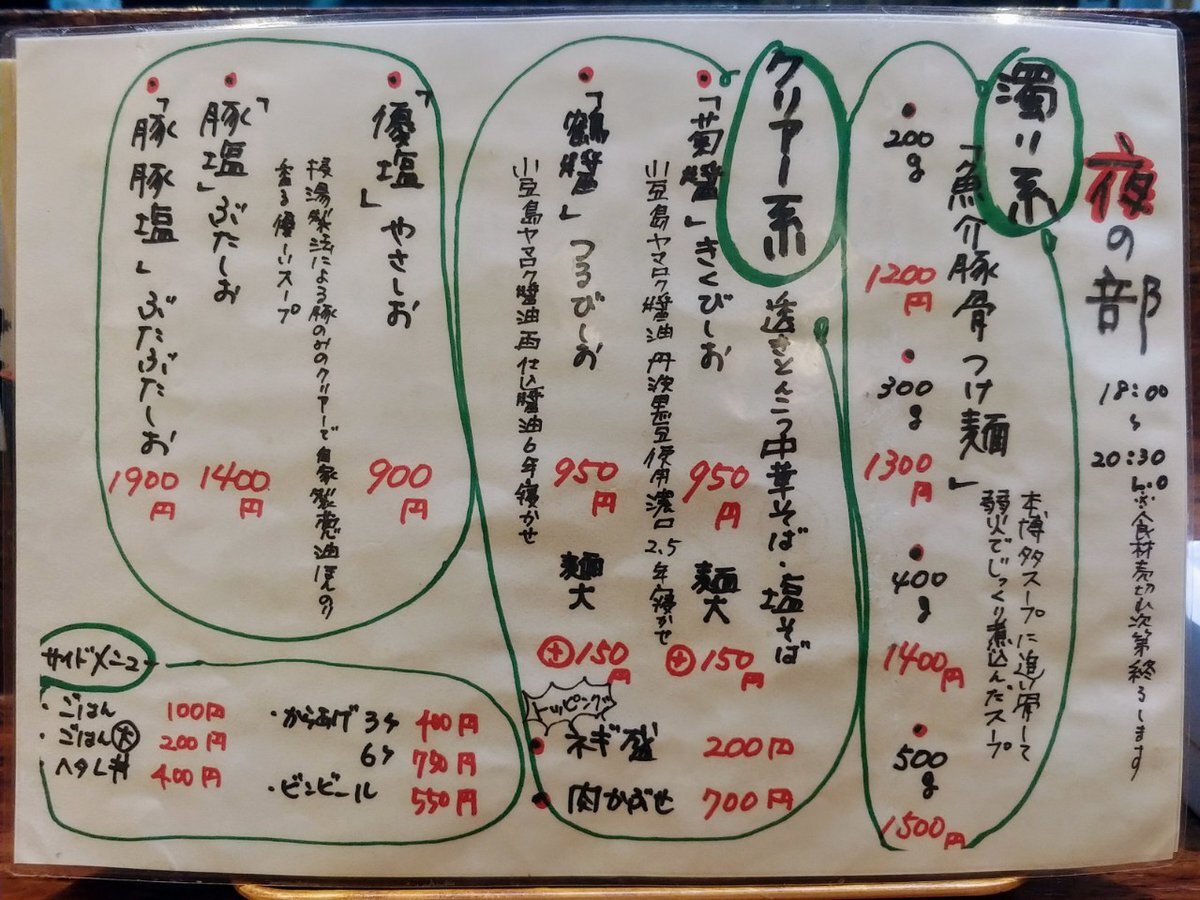 夜の部
18:00
〜
20:30
※食材売切れ次第終了します
濁り系
「魚介豚骨つけ麺」
本博多スープに追い骨して
弱火でじっくり煮込んだスープ
200g
1200円
300g
1300円
400g
1400円
500g
1500円
クリアー系
透きとんこつ中華そば・塩そば
「菊醬」きくびしお
950円
麺大
+150円
小豆島ヤマロク醬油 丹波黒豆使用濃口2.5年寝かせ
「鶴醬」つるびしお
950円
麺大
+150円
小豆島ヤマロク醬油 再仕込醬油6年寝かせ
トッピング
ネギ盛 200円
肉かぶせ 700円
「優塩」やさしお
900円
製法による豚のみのクリアーで自家製葱油ほんのり
香る優しいスープ
「豚塩」ぶたしお
1400円
「豚豚塩」ぶたぶたしお
1900円
サイドメニュー
・ごはん 100円
・ごはん大 200円
・ヘタレ丼 400円
・からあげ 3ケ 400円
6ケ 750円
・ビンビール 550円